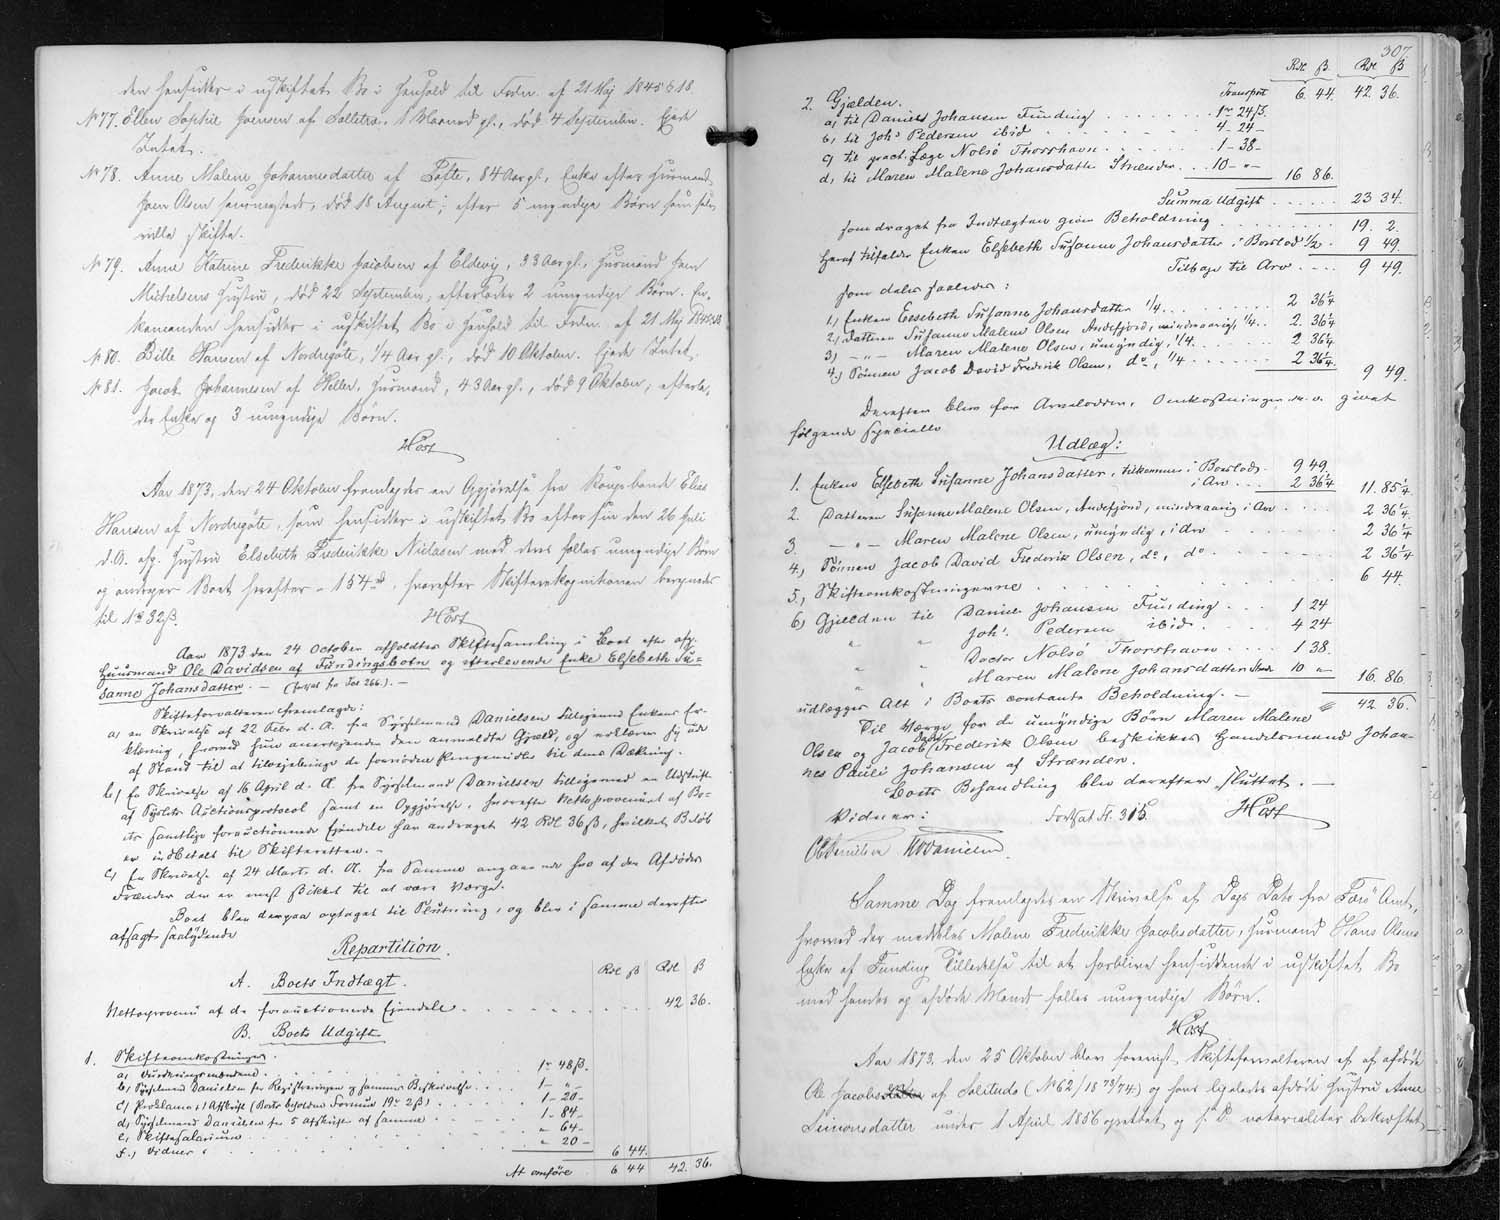 den hensidder i uskiftet Bo i Henhold til Frdn. af 21 Maj 1845 § 18.
No 77. Ellen Sophie Joensen af Solletrø, 1 Maaned gl., død 4 September. Ejede
Intet.
No 78. Anne Malene Johannesdatter af Toftte, 84 Aar gl., Enke efter Husmand
Joen Olsen sammesteds, død 18 August; efter 5 myndige Børn som selv
ville skifte.
No 79. Anne Katrine Frederikke Jacobsen af Eldevig, 33 Aar gl., Husmand Joen
Michelsens Hustru, død 22 September, efterlader 2 umyndige Børn. En-
kemanden hensidder i uskiftet Bo i Henhold til Frdn. af 21 Maj 1845 § 18
No 80. Bille Hansen af Nordregøte, 1/4 Aar gl., død 10 Oktober. Ejede Intet.
No 81. Jacob Johannesen af Heller, Husmand, 43 Aar gl., død 9 Oktober, efterla-
der Enke og 3 umyndige Børn.
Høst
Aar 1873, den 24 Oktober fremlagdes en Opgjørelse fra Kongsbonde Elias
Hansen af Nordregøte, som hensidder i uskiftet Bo efter sin den 26 Juli
d. A. afg. Hustru Elsebeth Frederikke Niclasen med deres fælles umyndige Børn
og andrager Boet herefter - 154 rd, hvorefter Skifterekognitionen beregnedes
til 1 rd 32 ß.
Høst
Aar 1873 den 24 October afholdtes Skiftesamling i Boet efter afg.
Huusmand Ole Davidsen af Fundingsbotn og efterlevende Enke Elsebeth Su-
sanne Johansdatter. - (fortsat fra Fol 266). -
Skifteforvalteren fremlagde:
a) en Skrivelse af 22 Febr. d. A. fra Sysselmand Danielsen tilligemed Enkens Er-
klæring, hvorved hun anerkjender den anmeldte Gjæld, og erklærer sig ude
af Stand til at tilvejebringe de fornødne Pengemidler til dens Dækning.
b) En Skrivelse af 16 April d. A. fra Sysselmand Danielsen tilligemed en Udskrift
af Syslets Auctionsprotocol samt en Opgjørelse, hvorefter Nettoprovenuet af Bo-
ets samtlige forauctionerede Ejendele har andraget 42 Rdl 36 ß, hvilket Beløb
er indbetalt til Skifteretten. -
c) En Skrivelse af 24 Marts d. A. fra Samme angaaende hvo af den Afdødes
Frænder der er mest skikket til at være Værge.
Boet blev derpaa optaget til Slutning, og blev i samme derefter
afsagt saalydende
Repartition.
Rdl ß Rdl ß
A. Boets Indtægt.
Nettoprovenu af de forauctionerede Ejendele . . . 42 36.
B. Boets Udgift
1. Skifteomkostninger.
a) Vurderingsmændene . . . 1 - 48 ß.
b) Sysselmand Danielsen for Registreringen og sammes Beskrivelse . . . 1 - " -
c) Proklama i 1 Afskrift (Boets beholdne Formue 19 rd 2 ß) . . . 1 - 20 -
d) Sysselmand Danielsen for 5 Afskrifter af samme . . . 1 - 84 -
e) Skiftesalarium . . . " 64 -
f.) Vidner . . . " 20 - 6 44.
At omføre 6 44 42. 36.
307.
Rdl ß Rdl ß
Transport 6. 44. 42. 36.
2. Gjælden.
a) til Daniel Johansen Funding . . . 1 rd 24 ß.
b) til Johs Pedersen ibid . . . 4 - 24 -
c) til pract. Læge Nolsø Thorshavn . . . 1 - 38 -
d) til Maren Malene Johansdatter Strænder . . . 10 - " - 16 86.
Summa Udgift . . . 23 34.
som draget fra Indtægten giver Beholdning . . . 19. 2.
Heraf tilfalder Enken Elsebeth Susanne Johansdatter i Boeslod 1/2. 9 49.
Tilbage til Arv . . . 9 49.
som deles saaledes:
1.) Enken Elsebeth Susanne Johansdatter 1/4 . . . 2 36 1/4
2.) Datteren Susanne Malene Olsen Andefjord, mindreaarig, 1/4 . . 2. 36 1/4
3) - " - Maren Malene Olsen, umyndig, 1/4 . . . 2 36 1/4
4.) Sønnen Jacob David Frederik Olsen, do, 1/4 . . . 2 36 1/4. 9 49.
Derefter blev for Arvelodder, Omkostninger m. v. givet
følgende specielle
Udlæg:
1. Enken Elsebeth Susanne Johansdatter, tilkommer i Boeslod . 9 49.
i Arv . . . 2 36 1/4 11. 85 1/4.
2. Datteren Susanne Malene Olsen, Andefjord, mindreaarig i Arv . . . 2 36 1/4.
3. - " - Maren Malene Olsen, umyndig, i Arv . . . 2 36 1/4
4.) Sønnen Jacob David Frederik Olsen, do, do . . . 2 36 1/4
5.) Skifteomkostningerne . . . 6 44.
6) Gjælden til Daniel Johansen Funding . . . 1 24
" " Johs. Pedersen ibid . . . 4 24
" " Doctor Nolsø Thorshavn . . . 1 38.
" " Maren Malene Johansdatter Strænder 10 " 16. 86
udlægges Alt i Boets contante Beholdning. - 42 36.
Til Værge for de umyndige Børn Maren Malene
Olsen og Jacob David Frederik Olsen beskikkes Handelsmand Johan-
nes Pauli Johansen af Strænder.
Boets Behandling blev derefter sluttet. -
Vidner: Fortsat Fol. 315. Høst
O Danielsen Danielsen.
Samme Dag fremlagdes en Skrivelse af Dags Dato fra Færø Amt,
hvorved der meddeles Malene Frederikke Jacobsdatter, Husmand Hans Olsens
Enke af Funding Tilladelse til at forblive hensiddende i uskiftet Bo
med hendes og afdøde Mands fælles umyndige Børn.
Høst
Aar 1873, den 25 Oktober blev foreviist Skifteforvalteren et af afdøde
Ole Jacobsen af Selletrø (No 62/1873/74) og hans ligeledes afdøde Hustru Anne
Simonsdatter under 1 April 1856 oprettet og s. D. notarialiter bekræftet